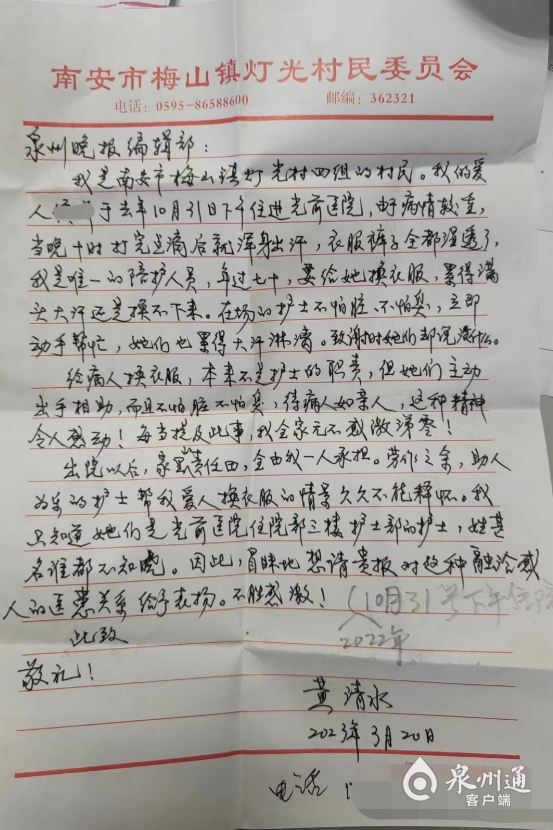 南安市梅山镇灯光村民委员会
电话：0595-86588600 邮编：362321
泉州晚报编辑部：
我是南安市梅山镇灯光村四组的村民。我的爱
人 于去年10月31日下午住进光前医院，由于病情较重，
当晚十时打完点滴后就浑身出汗，衣服裤子全都湿透了，
我是唯一的陪护人员，年过七十，要给她换衣服，累得满
头大汗还是换不下来。在场的护士不怕脏、不怕臭，立即
动手帮忙，她们也累得大汗淋漓。致谢时她们都说没什么。
给病人换衣服，本来不是护士的职责，但她们主动
出手相助，而且不怕脏不怕臭，待病人如亲人，这种精神
令人感动！每当提及此事，我全家无不感激涕零！
出院以后，家里责任田，全由我一人承担。劳作之余，助人
为乐的护士帮我爱人换衣服的情景久久不能释怀。我
只知道她们是光前医院住院部三楼护士部的护士，姓甚
名谁都不知晓。因此，冒昧地想请贵报对这种融洽感
人的医患关系给予表扬。不胜感激！
（10月31号下午住院
2022年
此致
敬礼！
黄清水
2023年3月20日
电话
泉州通
客户端